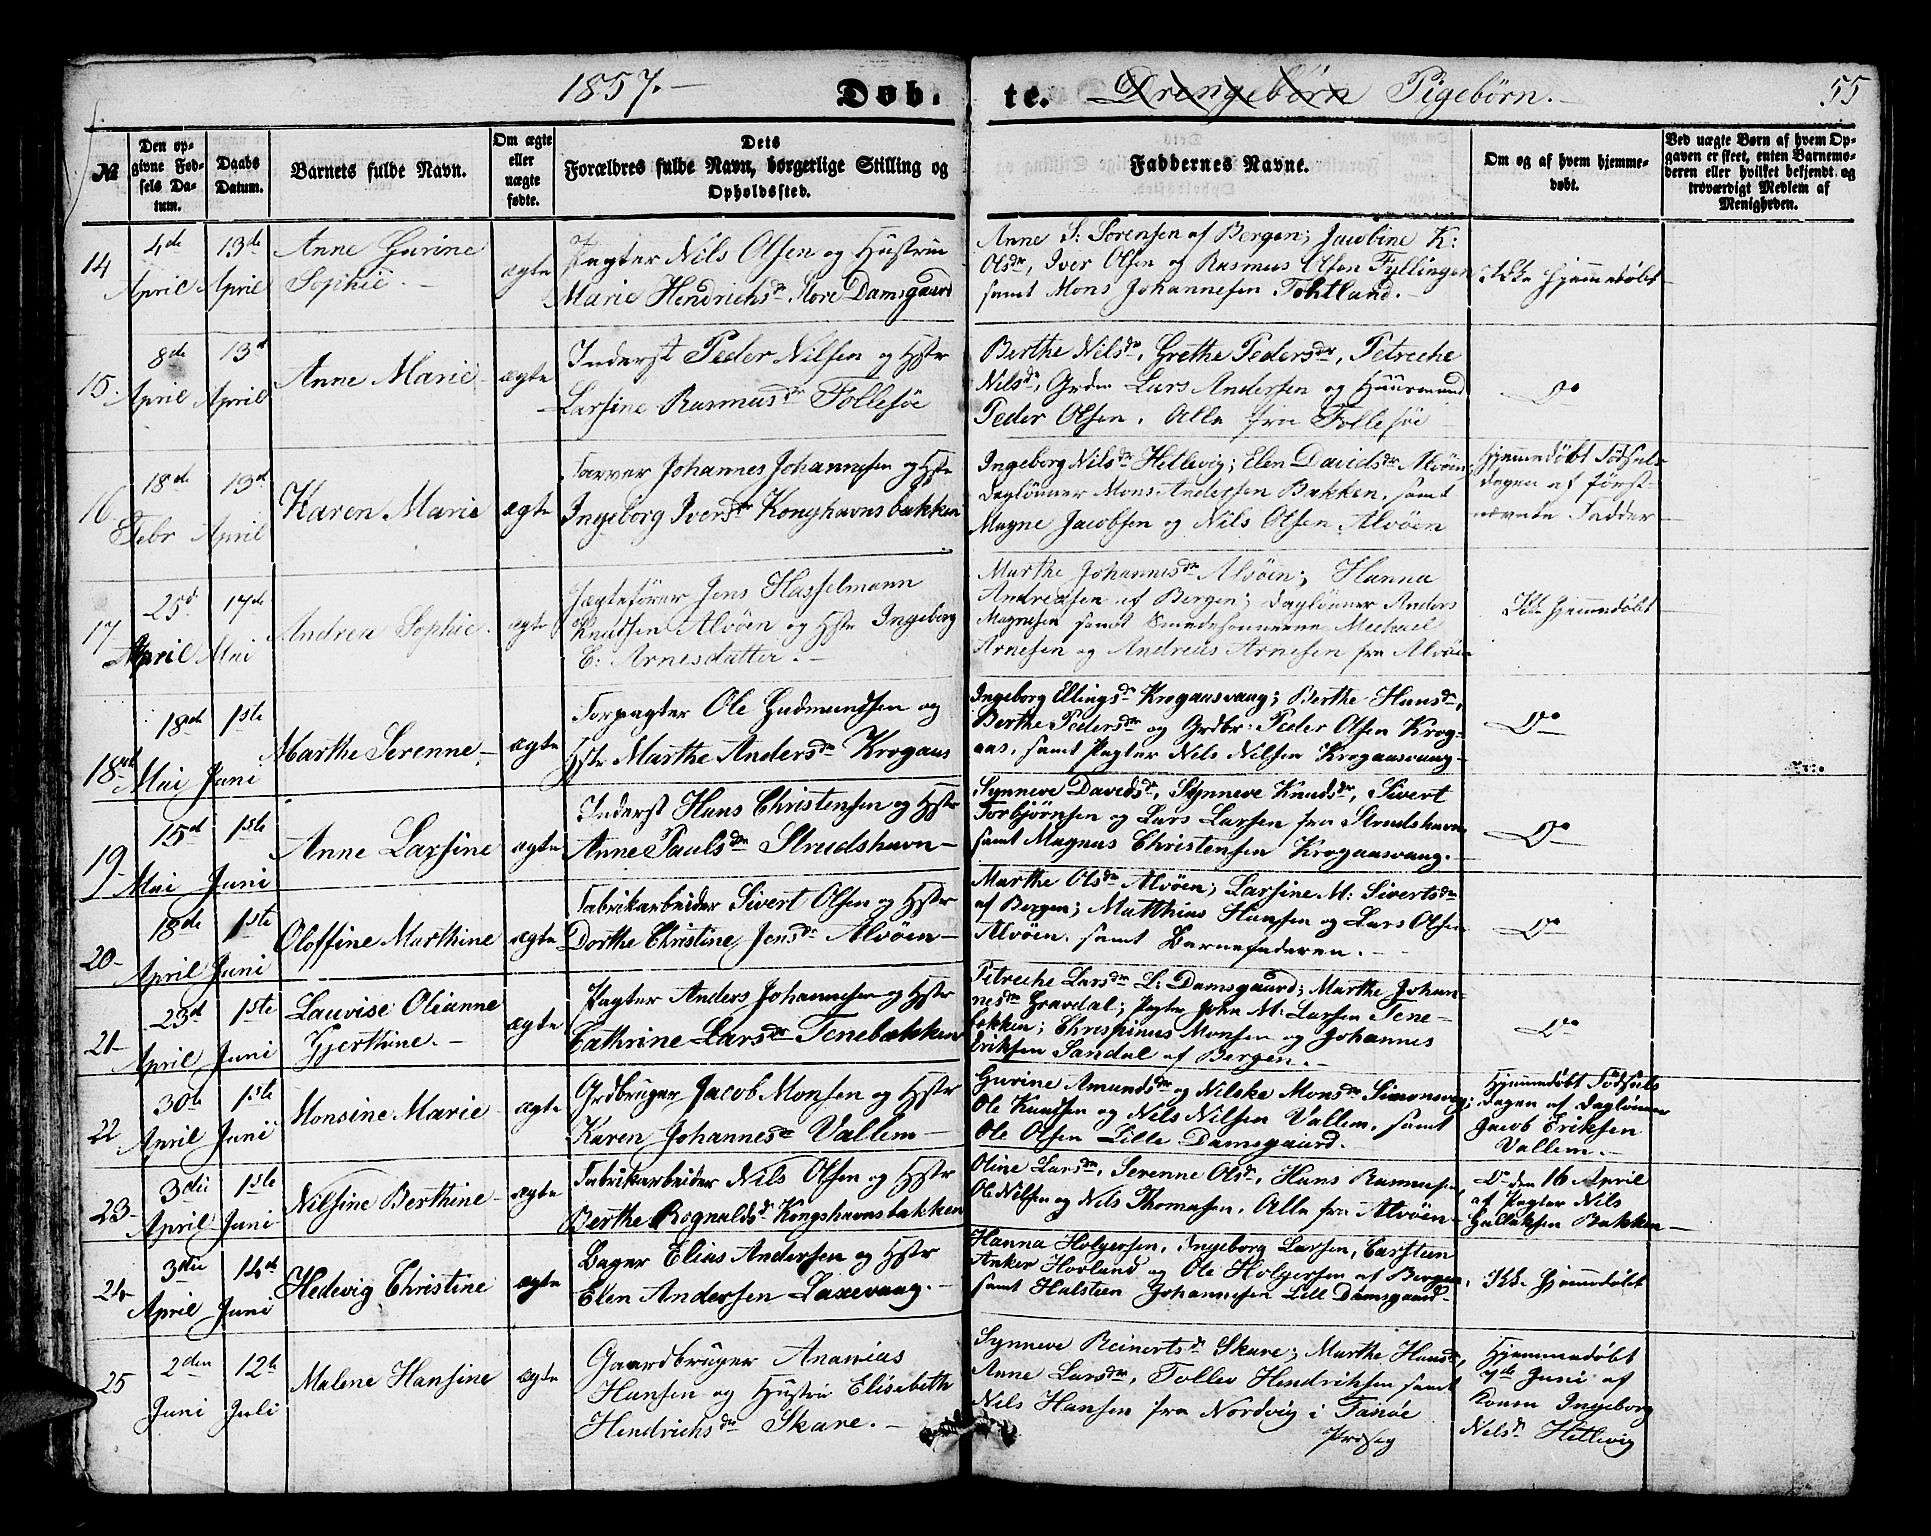 1857.-
Døb-
te.
Drengebørn Pigebørn.-
55
№
Den op-
givne Fød-
sels Da-
tum.
Daabs
Datum.
Barnets fulde Navn.
Om ægte
eller
uægte
fødte.
Dets
Forældres fulde Navn, borgerlige Stilling og
Opholdssted.
Faddernes Navne.
Om og af hvem hjemme-
døbt.
Ved uægte Børn af hvem Op-
gaven er skeet, enten Barnemo-
deren eller hvilket bekjendt og
troværdigt Medlem af
Menigheden.
14
4de
April
13de
April
Anne Gurine
Sophie.-
ægte
Pagter Nils Olsen og Hustrue
Marie Hendrichsdr Store Damsgaard
Anne S: Sørensen af Bergen; Jacobine K:
Olsdr, Iver Olsen og Rasmus Olsen Fyllingen
samt Mons Johannesen Tohtland.-
Ikke Hjemmedøbt
15.
8de
April
13d
April
Anne Marie
ægte
Inderst Peder Nilsen og Hstr
Larsine Rasmusdr Follesøe
Berthe Nilsdr, Grethe Pedersdr, Petreche
Nilsdr, Grdm Lars Andersen og Huusmand
Peder Olsen. Alle fra Follesøe
Do
16
18de
Febr
13d
April
Karen Marie
ægte
Farver Johannes Johannesen og Hstr
Ingeborg Iversdr Konghavnsbakken
Ingeborg Nilsdr Hetlevig; Elen Davidsdr Alvøen;
Daglønner Mons Andersen Bakken, samt
Magne Jacobsen og Nils Olsen Alvøen
Hjemmedøbt Fødsels-
dagen af først-
nævnte Fadder
17
25d
April
17de
Mai
Andrea Sophie.
ægte
Jægtefører Jens Hasselmann
Knudsen Alvøen og Hstr Ingeborg
E: Arnesdatter.-
Marthe Johannesdr Alvøen; Hanna
Andreasen af Bergen; Daglønner Anders
Magnesen samt Smedesønnerne Mechael
Arnesen og Andreas Arnesen fra Alvøen
Ikke Hjemmedøbt
18
18de
Mai
1ste
Juni
Marthe Serenne.
ægte
Forpagter Ole Gudmundsen og
Hstr Marthe Andersdr Krogaas
Ingeborg Ellingsdr Krogaasvaag; Berthe Hansdr,
Berthe Pedersdr og Grdbr: Peder Olsen Krog-
aas, samt Pagter Nils Nilsen Krogaasvaag-
Do
19
15d
Mai
1ste
Juni
Anne Larsine
ægte
Inderst Hans Christensen og Hstr
Anne Paulsdr Strudshavn-
Synneve Davidsdr, Synneve Knudsdr, Sivert
Torbjørnsen og Lars Larsen fra Strudshavn
samt Magnus Christensen Krogaasvaag.
Do
20-
18de
April
1ste
Juni
Oloffine Marthine
ægte
Fabrikarbeider Sivert Olsen og Hstr
Dorthe Christine Jensdr Alvøen-
Marthe Olsdr Alvøen; Larsine M: Sivertsdr
af Bergen; Matthias Hansen og Lars Olsen
Alvøen. samt Barnefaderen.-
Do
21-
23d
April
1ste
Juni
Lauvise Olianne
Gjerthine.-
ægte
Pagter Anders Johannesen og Hstr
Cathrine Larsdr Tenebækken
Petreche Larsdr L: Damsgaard; Marthe Johan-
nesdr Gravdal; Pagter John M: Larsen Tene-
bækken; Chrispinus Monsen og Johannes
Eriksen Sandal af Bergen.-
Do
22
30te
April
1ste
Juni
Monsine Marie
ægte
Grdbruger Jacob Monsen og Hstr
Karen Johannesdr Vallem-
Gurine Amundsdr og Nilske Monsdr Simonsvig;
Ole Knudsen og Nils Nilsen Vallem, samt
Ole Olsen Lille Damsgaard.
Hjemmedøbt Fødsels
dagen af Daglønner
Jacob Eriksen
Vallem.-
23-
3die
April
1ste
Juni
Nilsine Berthine
ægte
Fabrikarbeider Nils Olsen og Hstr
Berthe Rognaldsdr Kongshavnsbakken
Oline Larsdr, Serenne Olsdr, Hans Rasmusen,
Ole Nilsen og Nils Thomasen, Alle fra Alvøen-
Do den 16 April
af Pagter Nils
Bakken
24
3die
April
14de
Juni
Hedevig Christine
ægte
Bager Elias Andersen og Hstr
Elen Andersen Laxevaag.-
Hanna Holgersen, Ingeborg Larsen, Carsteen
Anker Hovland og Ole Holgersen af Bergen,
samt Halsteen Johannesen Lill Damsgaard
Ikke Hjemmedøbt
25
2den
Juni
12te
Juli
Malene Hansine
ægte
Gaardbruger Ananias
Hansen og Hustru Elisabeth
Hendrichsdr Skare.-
Synneve Reinertsdr Skare; Marthe Hansdr,
Anne Larsdr, Tollev Hendriksen samt
Nils Hansen fra Nordvig i Fanøe
Præstg
Hjemmedøbt
7de Juni af
Konen Ingeborg
Nilsdr Hetlevig